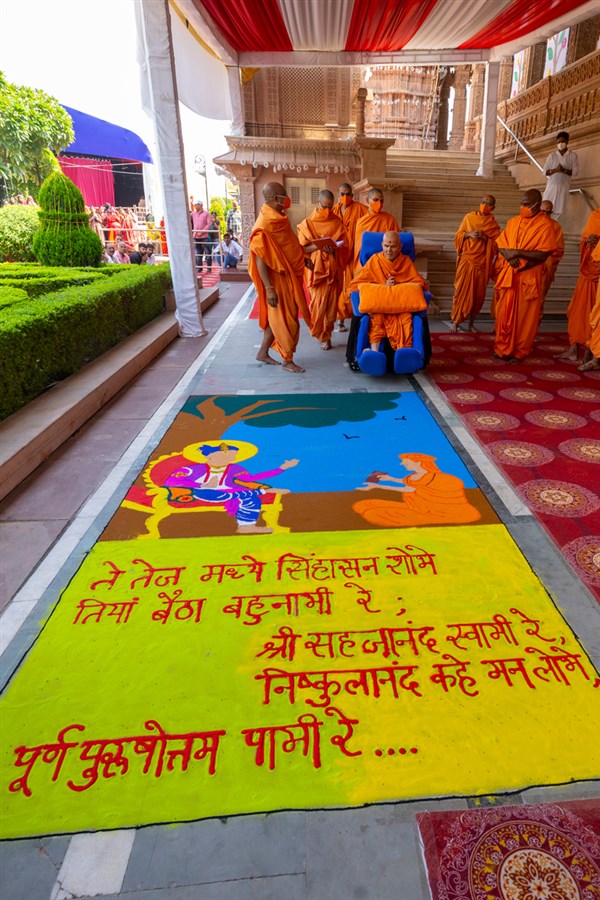 ते तेज मध्ये सिंहासन शोभे
तियां बैठा बहुनामी रे ;
श्री सहजानंद स्वामी रे,
निष्कुलानंद कहे मन लोभे,
पूर्ण पुरूषोत्तम पामी रे ....